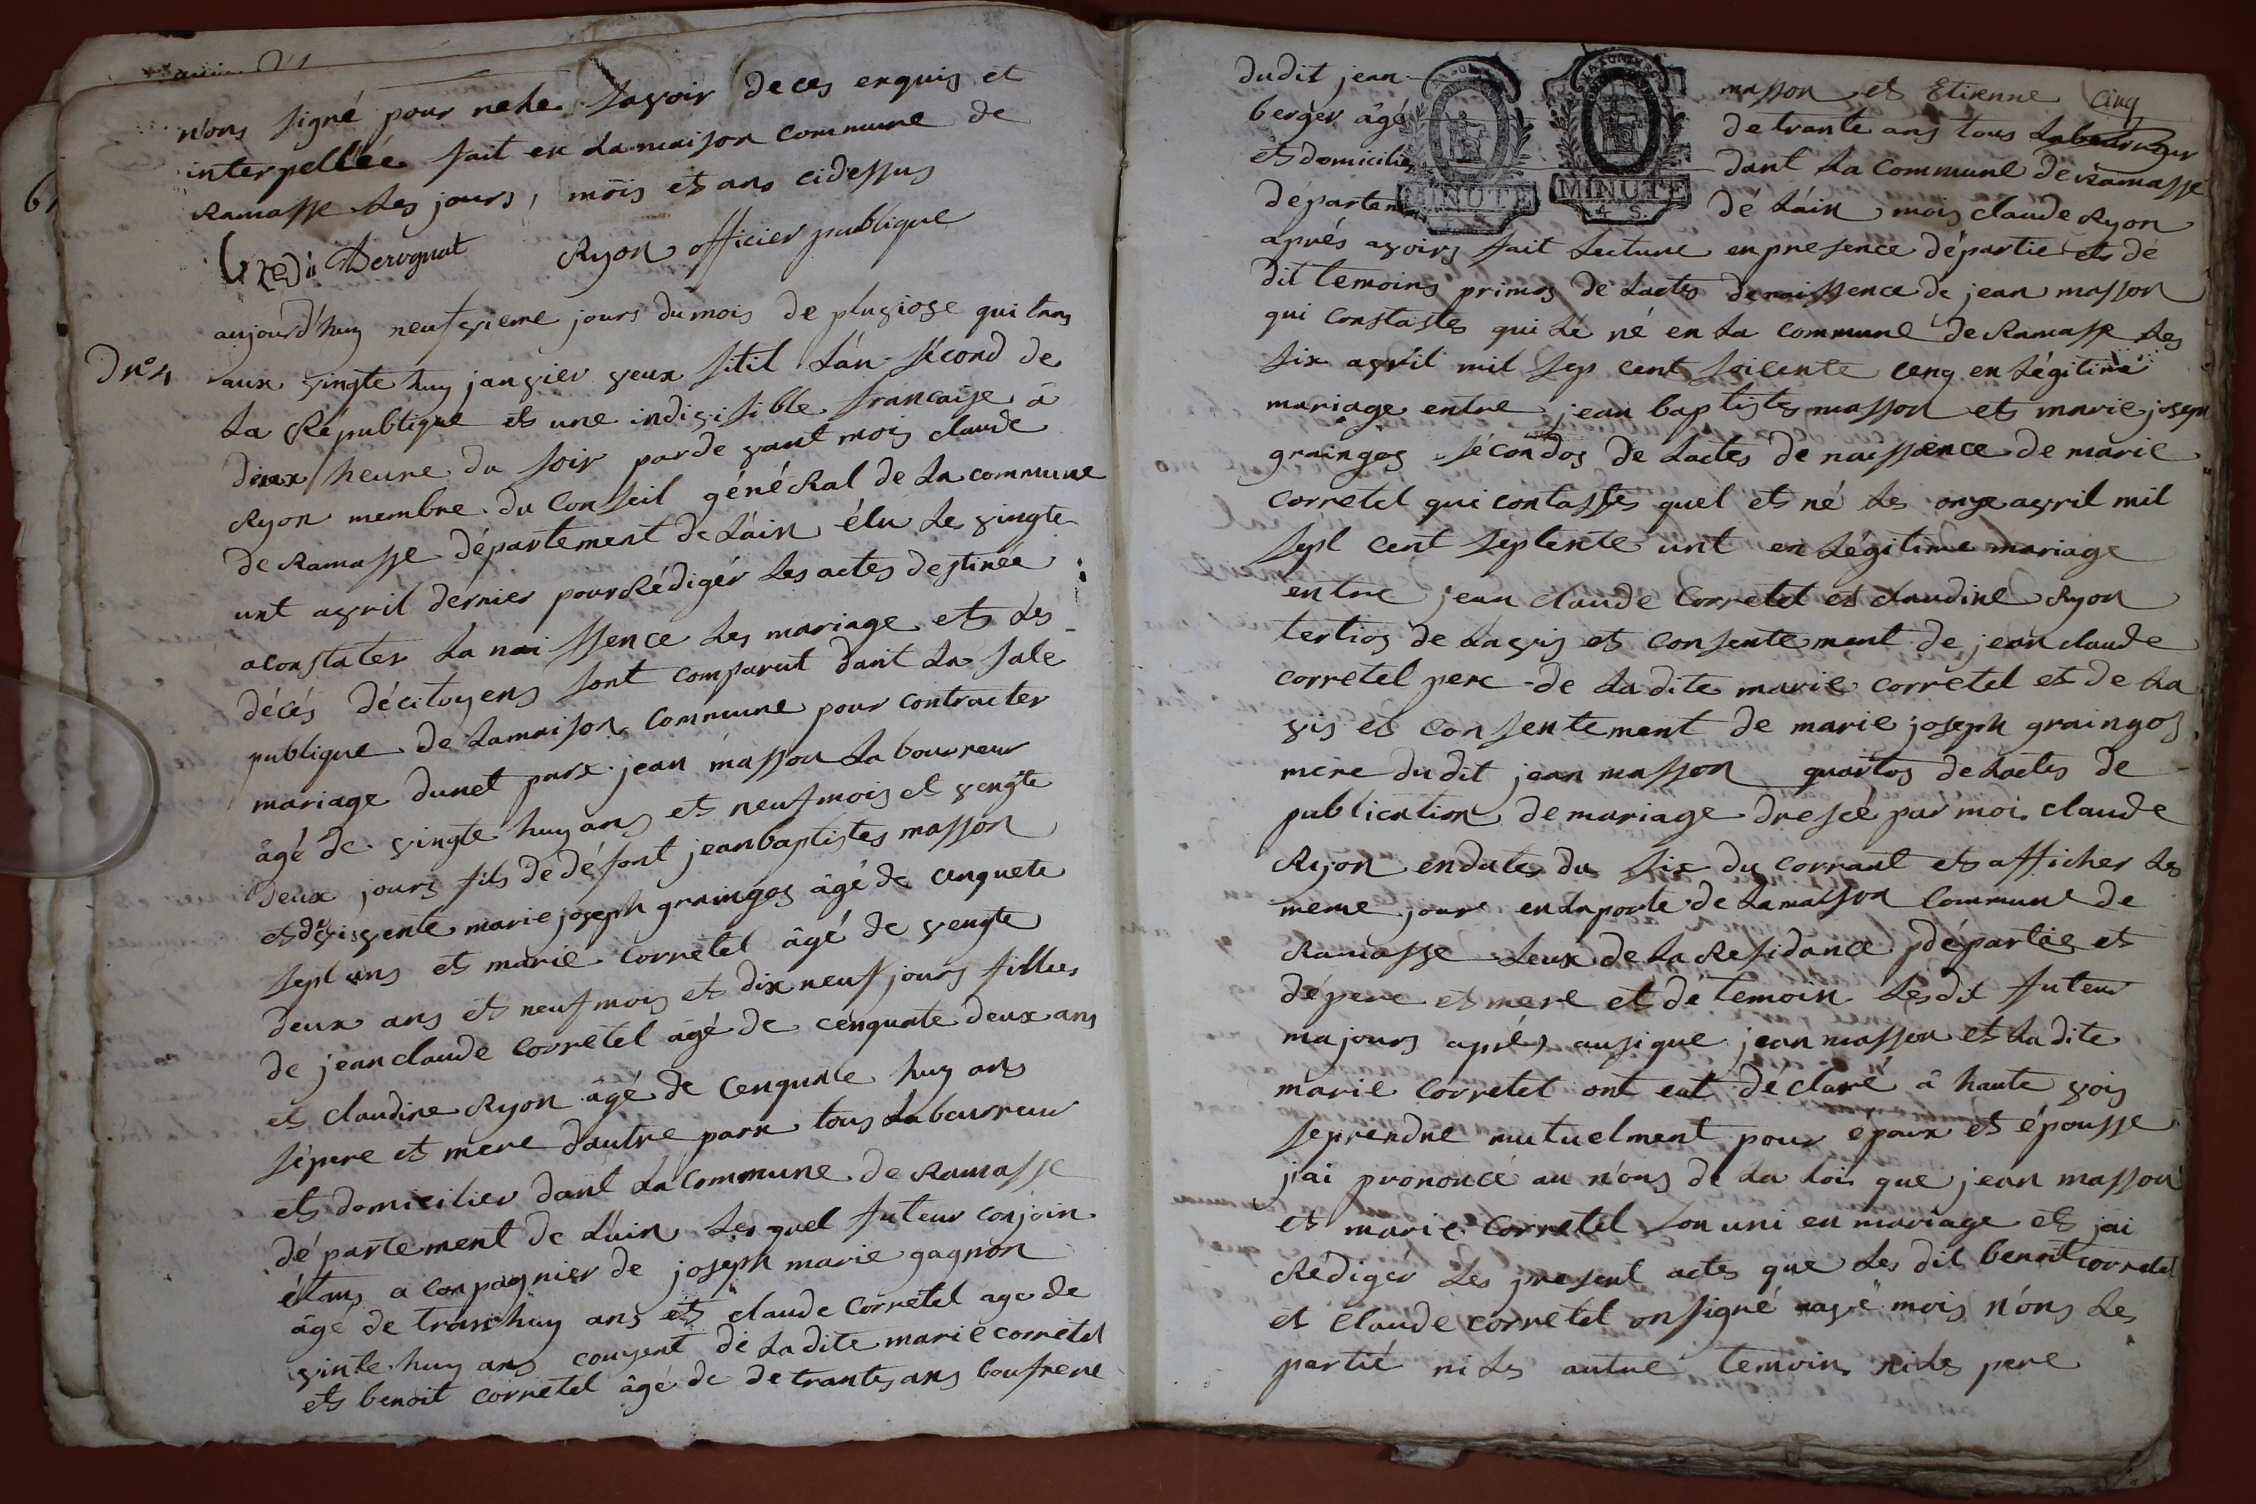 n'ons signé pour nehe savoir de ces enquis et
interpellée fait en la maison commune de
Ramasse les jours, mois et ans cidessus
Dervgnat Ryon officier publique
aujourd'huy neufvieme jours du mois de plusiose qui tras
Dr n° 4
aux vingte huy janvier veux stil l'an sécond de
la République et une indivisible francaise à
deux heure du soir par de vant mois claude
Ryon membre du Conseil généRal de la commune
de Ramasse département de l'ain élu le vingte
unt avril dernier pour Rédigér les actes destinee
a constater la nai ssence les mariage et les
décés décitoyens sont comparut dant la sale
publique de la maison commune pour contracter
mariage dunet parx jean masson laboureur
âgé de vingte huy ans et neuf mois et vengte
deux jours fils de défont jean baptistes masson
et de vivente marie joseph graingos âgé de cenquete
sept ans et marie Corretel âgé de vengte
deux ans et neuf mois et dix neuf jours filles
de jean claude Corretel âgé de cenquate deux ans
et claudine Ryon âgé de Cenquate huy ans
sépere et mere d'autre parx tous labourreur
et domicilier dant la Commune de Ramasse
département de l'ain les quel futeur conjoin
étans a conpagnier de joseph marie gagnon
âgé de tranthuy ans et claude Corretel age de
vinte huy ans cousent dé la dite marie corretel
et benoit corretel âgé de de trantes ans boufrere
dudit jean masson et Etienne cinq
berger âgé de trante ans tous labourreur
et domicilie dant la Commune de Ramasse
départem dé l'ain mois claude Ryon
aprés avoirs fait lecture en presence départié et dé
dit temoins primos de l'actes denaissence de jean masson
qui constates qui lé né en la commune de Ramasse les
six avril mil sep cent soicente cenq en légitime
mariage entre jean baptistes masson et marie joseph
graingos sécondos de l'actes de naissence de marie
corretel qui contastes quel et né les onze avril mil
sept cent septente unt en légitime mariage
entre jean claude Corretel et claudine Ryon
tertios de lavis et consentement de jean claude
corretel pere de la dite marie corretel et de la
vis et consentement de marie joseph graingos
mere du dit jean masson quartos de l'actes de
publication de mariage dressé par moi claude
Ryon en dates du six du corrant et afficher les
meme jour en la porte de la maison Commune de
Ramasse leux de la Residance départies et
dépere et mere et dé temoin lesdit futeur
majours aprés ausique jean masson et la dite
marie Corretel ont eut déclaré â haute vois
seprendre mutuelment pour epoux et épousse
j'ai prononcé au n'ons de la loi que jean masson
et marie Corretel son uni en mariage et jai
Rédigér les present actes que les dit benoit corretel
et Claude corretel on signé avé mois n'ons les
partié ni les autre temoin ni les pere